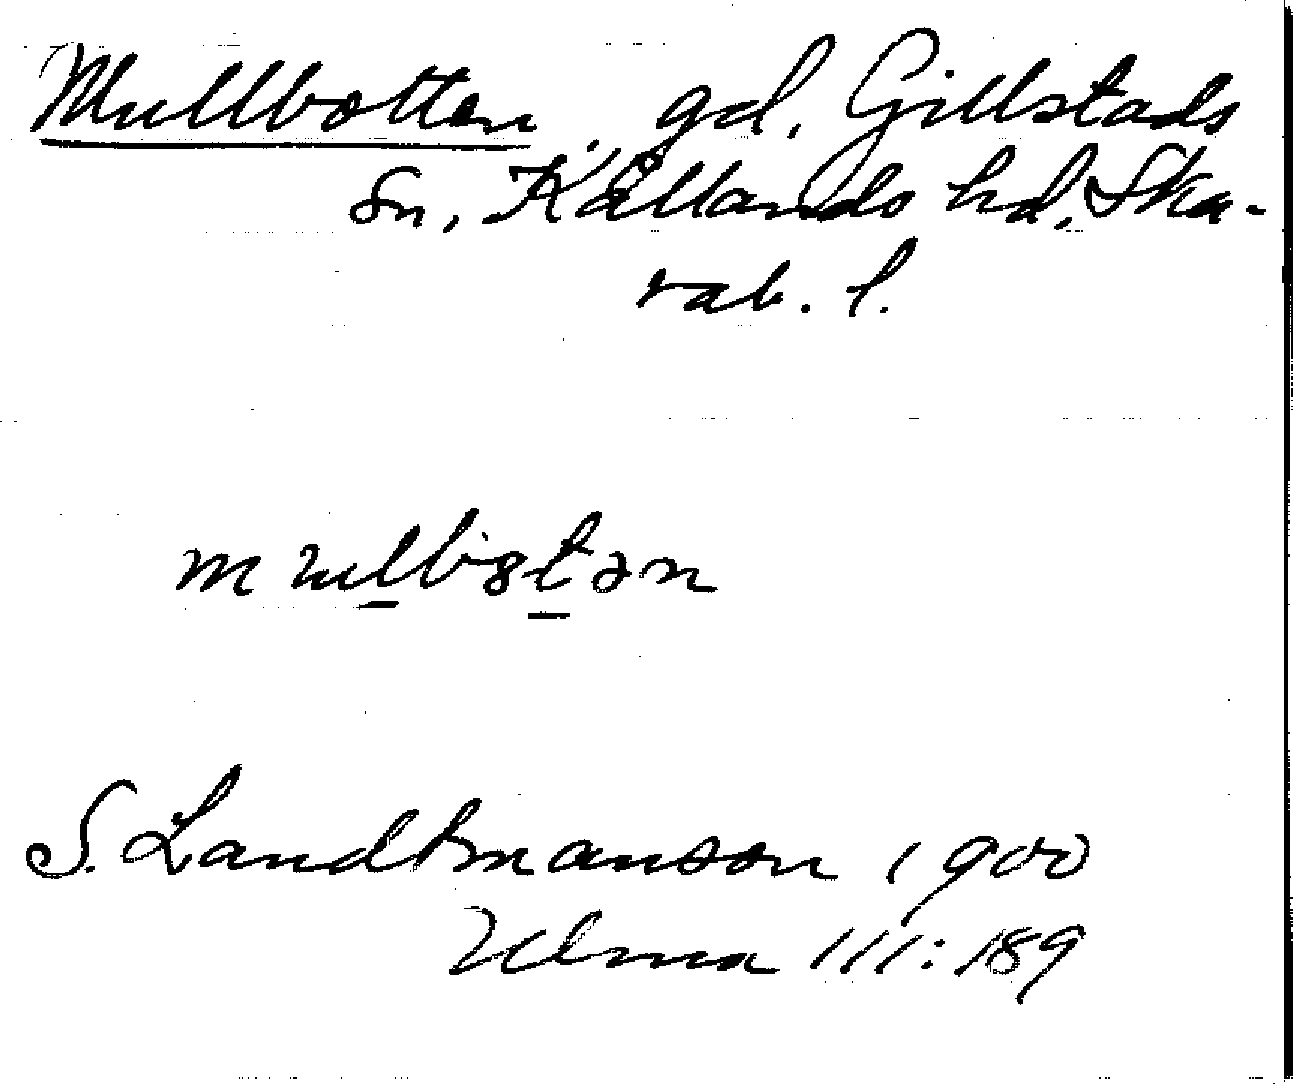 Mullbotten, gd, Gillstads
sn, Kållands hd, Ska-
rab. l.
S. Landtmanson 1900
Ulma 111:189